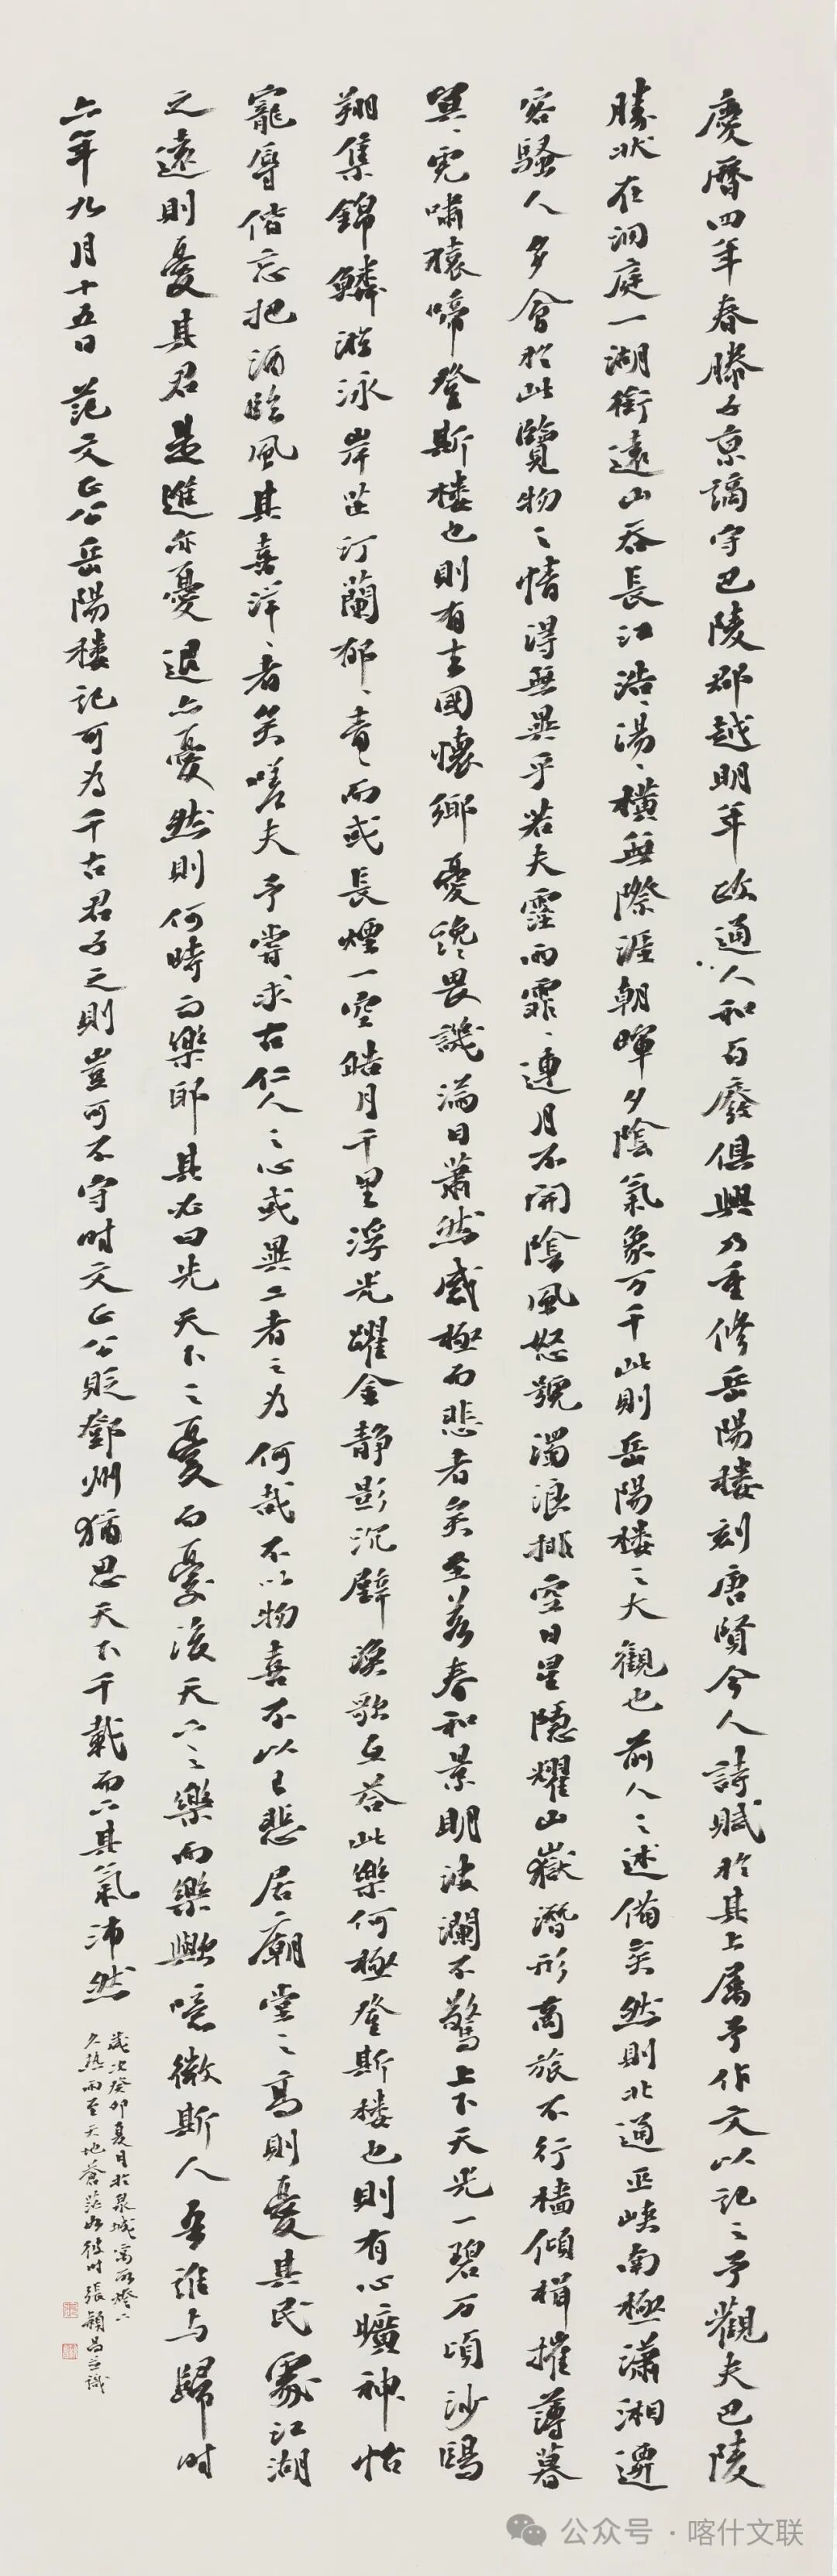 慶曆四年春滕子京謫守巴陵郡越明年政通人和百廢俱興乃重修岳陽樓刻唐賢今人詩賦於其上属予作文以記之予觀夫巴陵
勝狀在洞庭一湖銜遠山吞長江浩〻湯〻橫無際涯朝暉夕陰氣象万千此則岳陽樓之大觀也前人之述備矣然則北通巫峽南極瀟湘遷
客騷人多會於此覽物之情得無異乎若夫霪雨霏〻連月不開陰風怒號濁浪排空日星隱耀山嶽潛形商旅不行檣傾楫摧薄暮
冥〻虎嘯猿啼登斯樓也則有去國懷鄉憂讒畏譏滿目蕭然感極而悲者矣至若春和景明波瀾不驚上下天光一碧万頃沙鷗
翔集錦鱗游泳岸芷汀蘭郁〻青〻而或長煙一空皓月千里浮光躍金靜影沉璧漁歌互荅此樂何極登斯樓也則有心曠神怡
寵辱偕忘把酒臨風其喜洋〻者矣嗟夫予嘗求古仁人之心或異二者之為何哉不以物喜不以己悲居廟堂之高則憂其民處江湖
之遠則憂其君是進亦憂退亦憂然則何時而樂耶其必曰先天下之憂而憂後天下之樂而樂歟噫微斯人吾誰与歸时
六年九月十五日 范文正公岳陽樓記可为千古君子之則豈可不守时文正公貶鄧州猶思天下千載而下其氣沛然
歲次癸卯夏月於泉城寓所燈下
久熱雨至天地蒼茫如彼时張穎昌并識
公众号 · 喀什文联